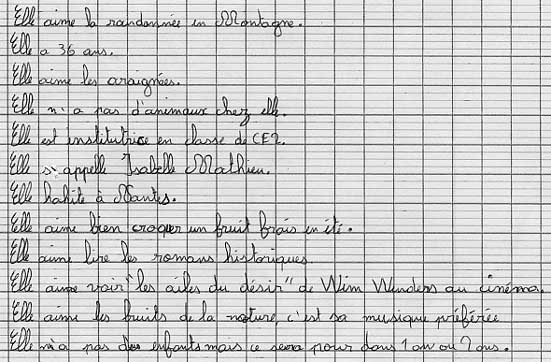 Elle aime la randonnée en Montagne.
Elle a 36 ans.
Elle aime les araignées.
Elle n'a pas d'animaux chez elle.
Elle est institutrice en classe de CE2.
Elle s'appelle Isabelle Mathieu.
Elle habite à Nantes.
Elle aime bien croquer un fruit frais en été.
Elle aime lire les romans historiques.
Elle aime voir "les ailes du désir" de Wim Wenders au cinéma.
Elle aime les bruits de la nature, c'est sa musique préférée
Elle n'a pas des enfants mais ce sera pour dans 1 an ou 2 ans.